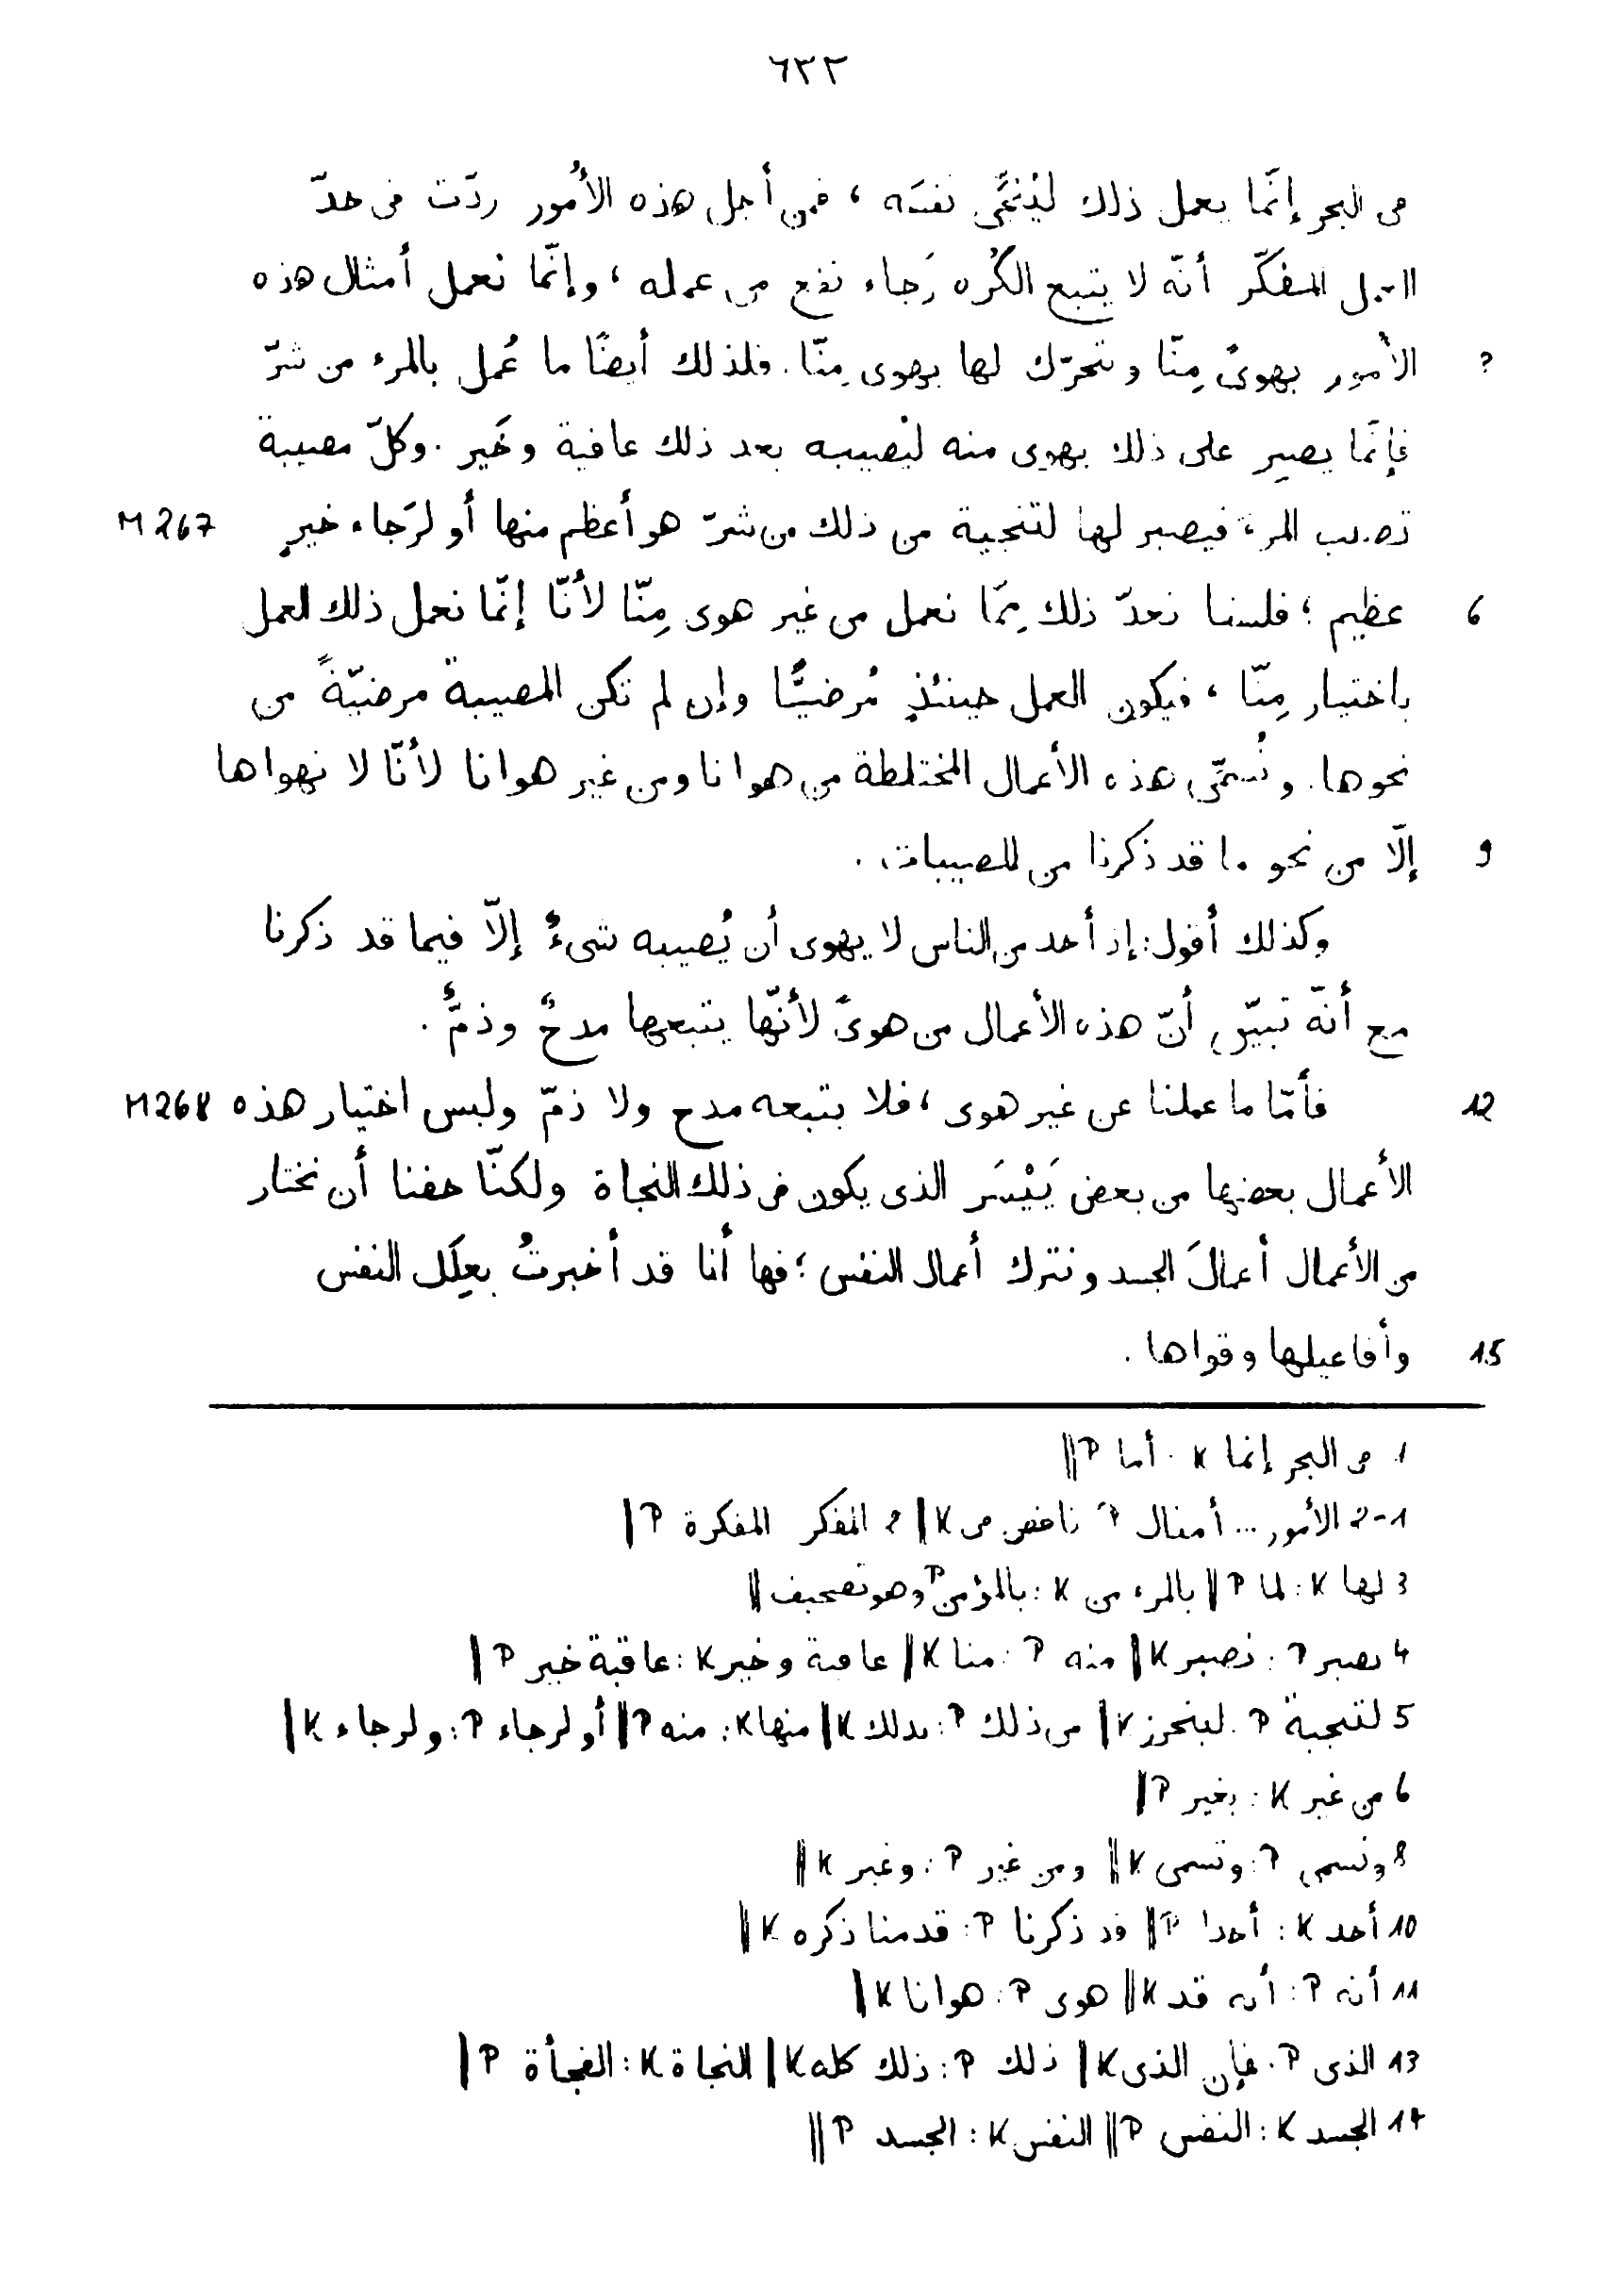 ٦٣٢
فى البحر إنّما يعمل ذلك ليُنَجِّى نفسَه ، فمن أجل هذه الأُمور ردّت فى حدّ
المفكّر أنّه لا يتبع الكُره رَجاء نفع من عمله ، وإنّما نعمل أمثال هذه
3 الأُمور بهوىً مِنّا ونتحرّك لها بهوى مِنّا. فلذلك أيضًا ما عُمل بالمرء من شرّ
فإنّما يصبِر على ذلك بهوى منه ليُصيبه بعد ذلك عافية وخَير . وكلّ مصيبة
تصيب المرء فيصبر لها لتنجية من ذلك من شرّ هو أعظم منها أو لرَجاء خيرٍ M 267
6 عظيم ؛ فلسنا نعدّ ذلك مِمّا نعمل من غير هوى مِنّا لأنّا إنّما نعمل ذلك العمل
باختيار مِنّا ، فيكون العمل حينئذٍ مُرضيًّا وإن لم تكن المصيبة مرضيّةً من
نحوها. ونُسمّى هذه الأعمال المختلطة من هوانا ومن غير هوانا لأنّا لا نهواها
9 إلّا من نحو ما قد ذكرنا من المصيبات .
وكذلك أقول: إن أحد من الناس لا يهوى أن يُصيبه شىءٌ إلّا فيما قد ذكرنا
مع أنّه تبيّن أنّ هذه الأعمال من هوىً لأنّها يتبعها مدحٌ وذمٌّ .
12 فأمّا ما عملنا عن غير هوى ، فلا يتبعه مدح ولا ذمّ وليس اختيار هذه M 268
الأعمال بعضها من بعض يَيْسَر الذى يكون فى ذلك النجاة ولكنّا حفنا أن نختار
من الأعمال أعمالَ الجسد ونترك أعمال النفس ؛ فها أنا قد أخبرتُ بعِلَل النفس
15 وأفاعيلها وقواها .
1 فى البحر إنما K : أما P ||
1-2 الأمور ... أمثال P : ناقص من K || 2 المفكر المفكرة P ||
3 لها K : لما P || بالمرء من K : بالمؤمن P وهو تصحيف ||
4 يصبر P : نصبر K || منه P : منا K || عافية وخير K : عاقبة خير P ||
5 لتنجية P : ليتحرز K || من ذلك P : بذلك K || منها K : منه P || أو لرجاء P : ولرجاء K ||
6 من غير K : بغير P ||
8 ونسمى P : وتسمى K || ومن غير P : وغير K ||
10 أحد K : أحدا P || قد ذكرنا P : قدمنا ذكره K ||
11 أنه P : أنه قد K || هوى P : هوانا K ||
13 الذى P : فإن الذى K || ذلك P : ذلك كله K || النجاة K : الفجأة P ||
14 الجسد K : النفس P || النفس K : الجسد P ||